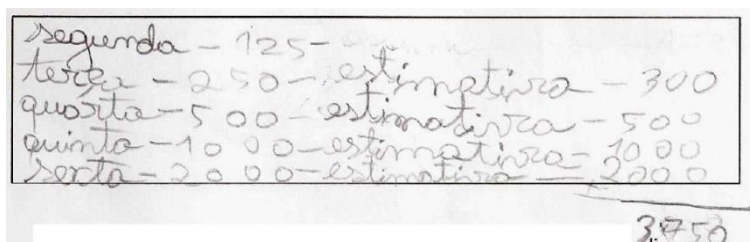 segunda - 125-
terça - 250 - estimativa - 300
quarta - 500 - estimativa - 500
quinta - 1000 - estimativa - 1000
sexta - 2000 - estimativa - 2000
3.750